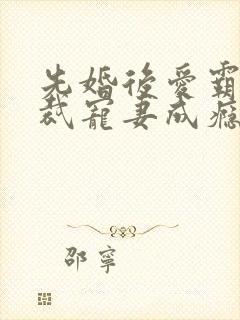 先婚後愛霸
裁寵妻成癮
邵寧